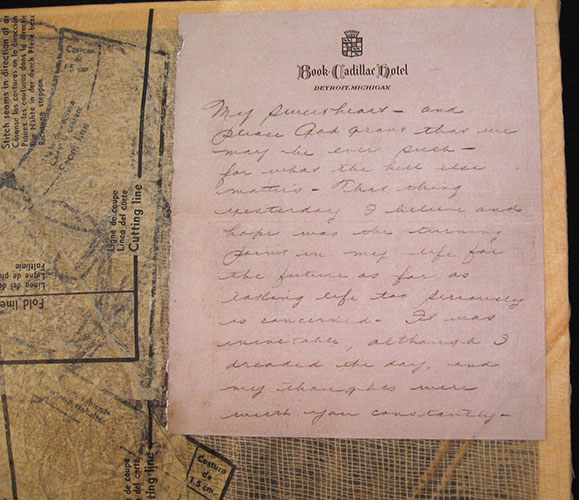 Book-Cadillac Hotel
DETROIT, MICHIGAN
My sweetheart - and
please God grant that we
may be ever such -
for what the hell else
matters - That thing
yesterday I believe and
hope was the turning
point in my life for
the future as far as
taking life too seriously
is concerned. It was
inevitable, although I
dreaded the day, and
my thoughts were
with you constantly -
Stitch seams in direction of
Piquez les coutures dans la
Die Nähte in der durch Pfeile
Ligne de coupe
Línea del corte
Cutting line
Faltlinie
Fold line
de coupe
del corte
Cutting line
Costura
de
1.5 cm.